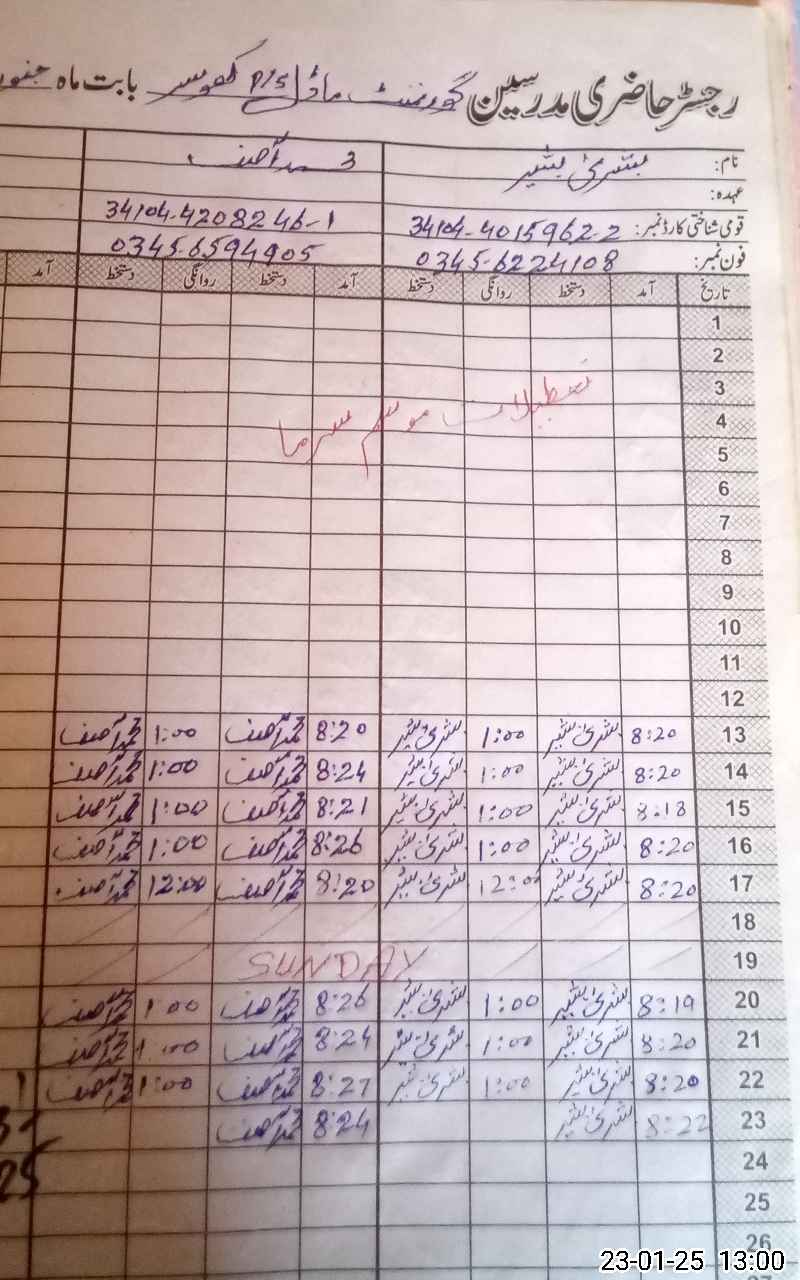 رجسٹر حاضری مدرسین گورنمنٹ ماڈل P/S کھوسر بابت ماہ جنور
نام: بشریٰ بشیر محمد آصف
عہدہ:
قومی شناختی کارڈ نمبر: 34104-4015962-2 34104-4208246-1
فون نمبر: 0345-6224108 0345-6594905
تاریخ آمد دستخط روانگی دستخط آمد دستخط روانگی دستخط آمد
1
2
3
تعطیلات موسم سرما
4
5
6
7
8
9
10
11
12
13 8:20 بشریٰ بشیر 1:00 بشریٰ بشیر 8:20 محمد آصف 1:00 محمد آصف
14 8:20 بشریٰ بشیر 1:00 بشریٰ بشیر 8:24 محمد آصف 1:00 محمد آصف
15 8:18 بشریٰ بشیر 1:00 بشریٰ بشیر 8:21 محمد آصف 1:00 محمد آصف
16 8:20 بشریٰ بشیر 1:00 بشریٰ بشیر 8:26 محمد آصف 1:00 محمد آصف
17 8:20 بشریٰ بشیر 12:00 بشریٰ بشیر 8:20 محمد آصف 12:00 محمد آصف
18
19 SUNDAY
20 8:19 بشریٰ بشیر 1:00 بشریٰ بشیر 8:26 محمد آصف 1:00 محمد آصف
21 8:20 بشریٰ بشیر 1:00 بشریٰ بشیر 8:24 محمد آصف 1:00 محمد آصف
22 8:20 بشریٰ بشیر 1:00 بشریٰ بشیر 8:27 محمد آصف 1:00 محمد آصف
23 8:22 بشریٰ بشیر 8:24 محمد آصف
24
25
26
25
23-01-25 13:00